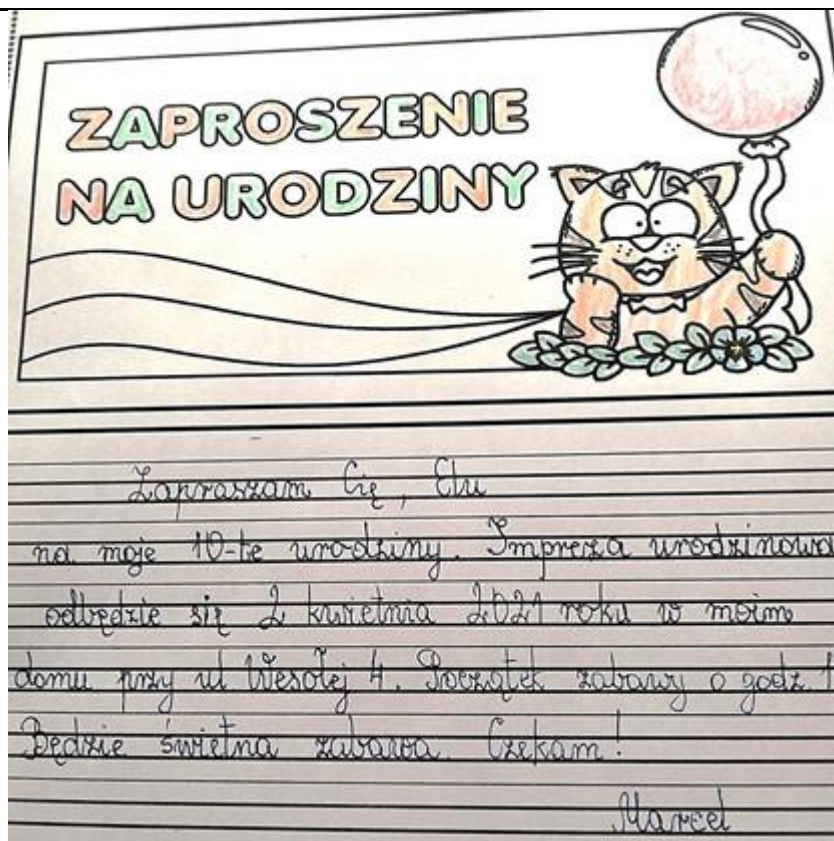 ZAPROSZENIE
NA URODZINY
Zapraszam Cię, Elu
na moje 10-te urodziny. Impreza urodzinowa
odbędzie się 2 kwietnia 2021 roku w moim
domu przy ul Wesołej 4. Początek zabawy o godz
Będzie świetna zabawa. Czekam!
Marcel